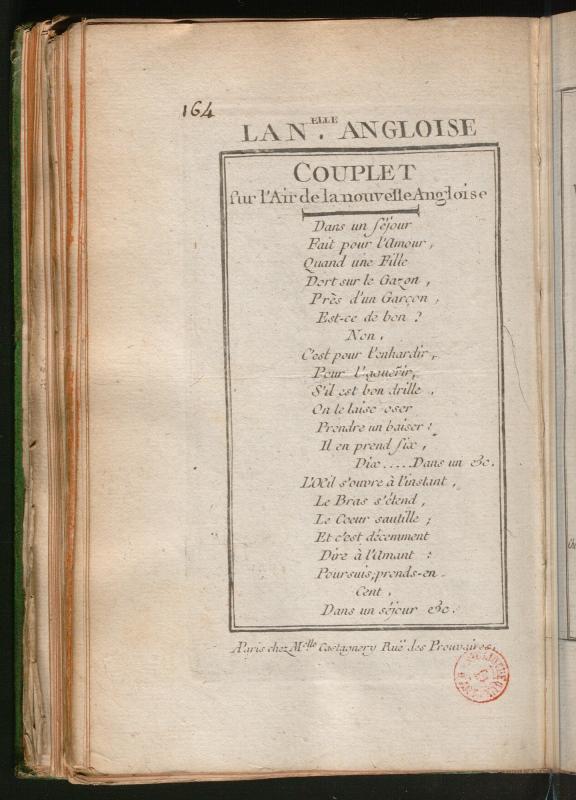 164
LA N.ELLE ANGLOISE
COUPLET
sur l'Air de la nouvelle Angloise
Dans un séjour
Fait pour l'Amour,
Quand une Fille
Dort sur le Gazon,
Près d'un Garçon,
Est-ce de bon ?
Non,
C'est pour l'enhardir,
Pour l'aguérir,
S'il est bon drille,
On le laise oser
Prendre un baiser :
Il en prend six,
Dix.....Dans un &c.
L'Œil s'ouvre à l'instant,
Le Bras s'étend,
Le Coeur sautille ;
Et c'est décemment
Dire à l'Amant :
Poursuis, prends-en
Cent,
Dans un séjour &c.
A Paris chez M.elle Castagnery Ruë des Prouvaires.